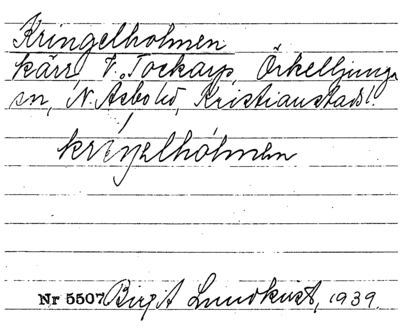 Kringelholmen
kärr V. Tockarp, Örkelljunga
sn, N. Åsbo hd, Kristianstads l.
kriŋelhólmen
Nr 5507 Birgit Lundkvist, 1939.